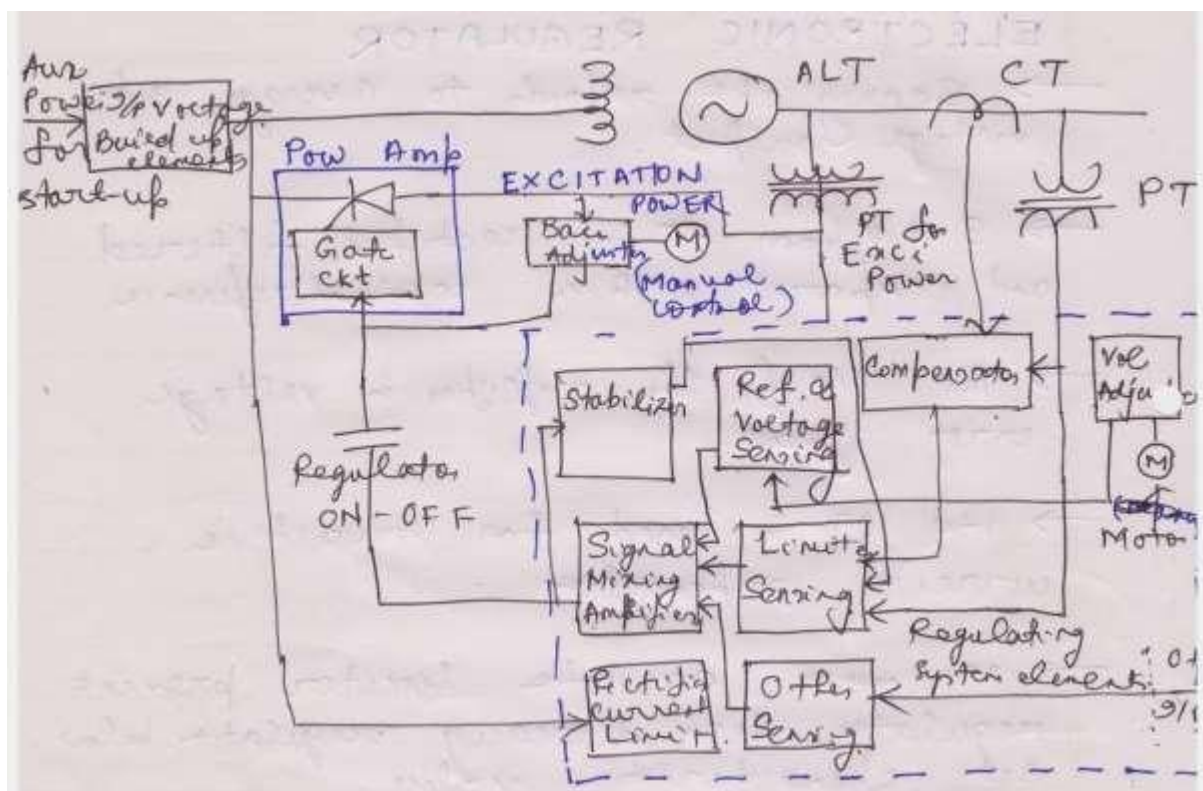 ELECTRONIC REGULATOR
Aux
Power
for
start-up
I/P Voltage
Build up
elements
Pow Amp
Gate
Ckt
EXCITATION
POWER
Base
Adjuster
M
(Manual
Control)
ALT
CT
PT
PT for
Exci
Power
Regulator
ON-OFF
Stabilizer
Ref. &
Voltage
Sensing
Compensator
Vol
Adju
M
Motor
Signal
Mixing
Amplifier
Limit
Sensing
Regulating
System elements
Rectifier
Current
Limit.
Other
Sensing